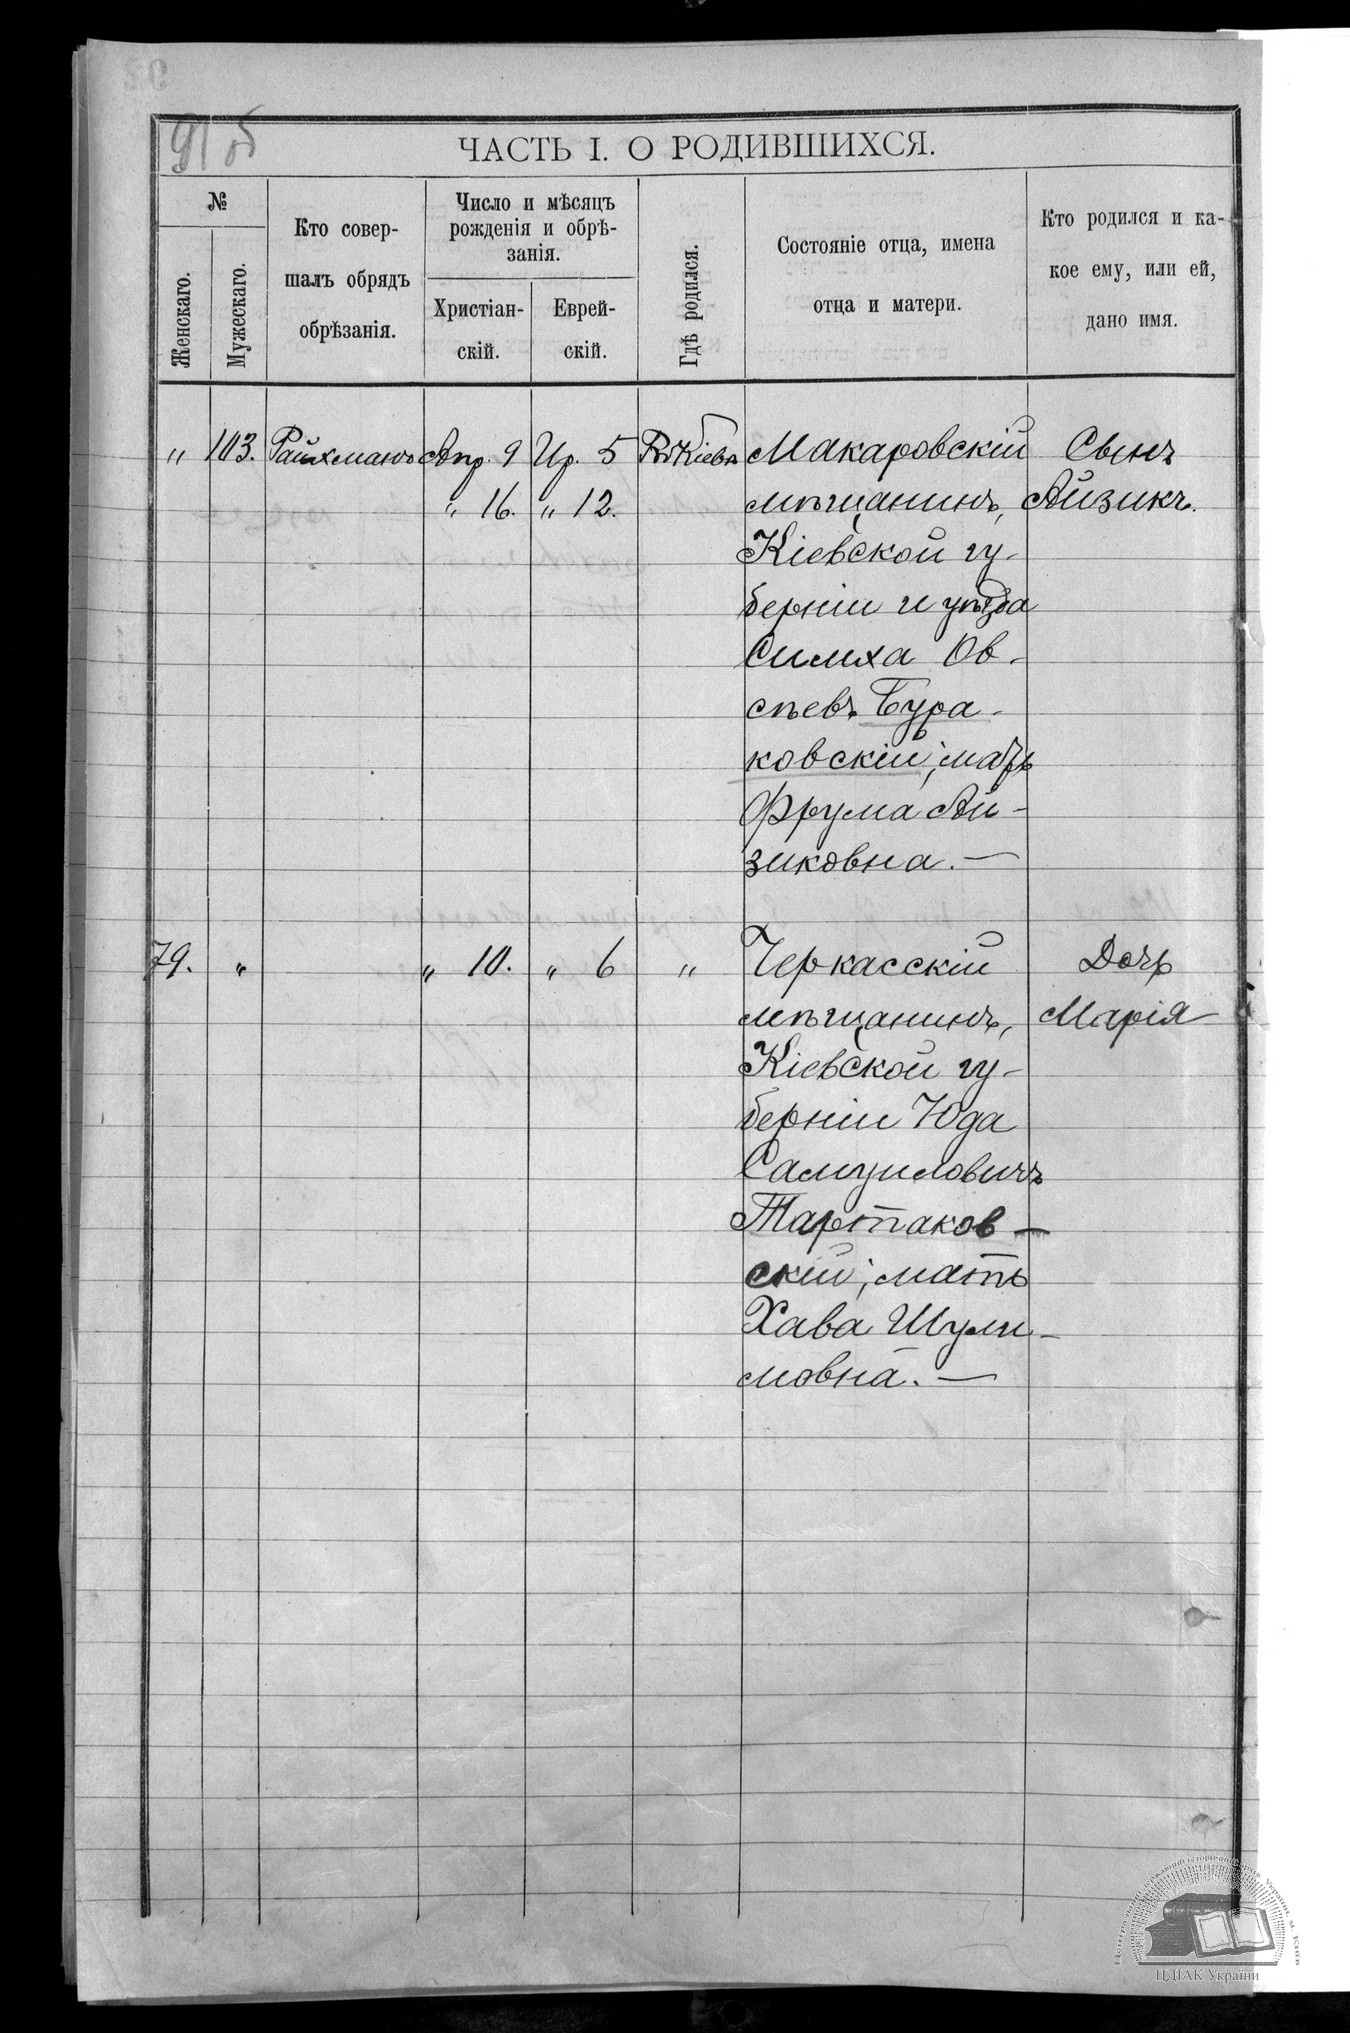 91 об
ЧАСТЬ I. О РОДИВШИХСЯ.
№
Женскаго.
Мужескаго.
Кто совер-
шалъ обрядъ
обрѣзанія.
Число и мѣсяцъ
рожденія и обрѣ-
занія.
Христіан-
скій.
Еврей-
скій.
Гдѣ родился.
Состояніе отца, имена
отца и матери.
Кто родился и ка-
кое ему, или ей,
дано имя.
„ 103. Райхманъ Апр. 9 Ир. 5 Въ Кіевѣ Макаровскій Сынъ
„ 16. „ 12. мѣщанинъ, Айзикъ.
Кіевской гу-
берніи и уѣзда
Симха Ов-
сѣевъ Бура-
ковскій; мать
Фрума Ай-
зиковна. —
79. „ „ 10. „ 6 „ Черкасскій Дочь
мѣщанинъ, Марія
Кіевской гу-
берніи Юда
Самуиловичъ
Тартаков-
скій; мать
Хава Шули-
мовна. —
ЦДІАК України